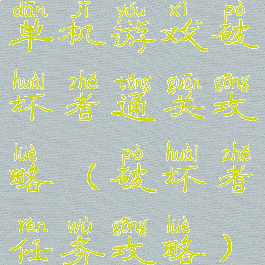 dān jī yóu xì pò
单机游戏破
huài zhě tōng guān gōng
坏者通关攻
lüè ( pò huài zhě
略(破坏者
rèn wù gōng lüè
任务攻略)